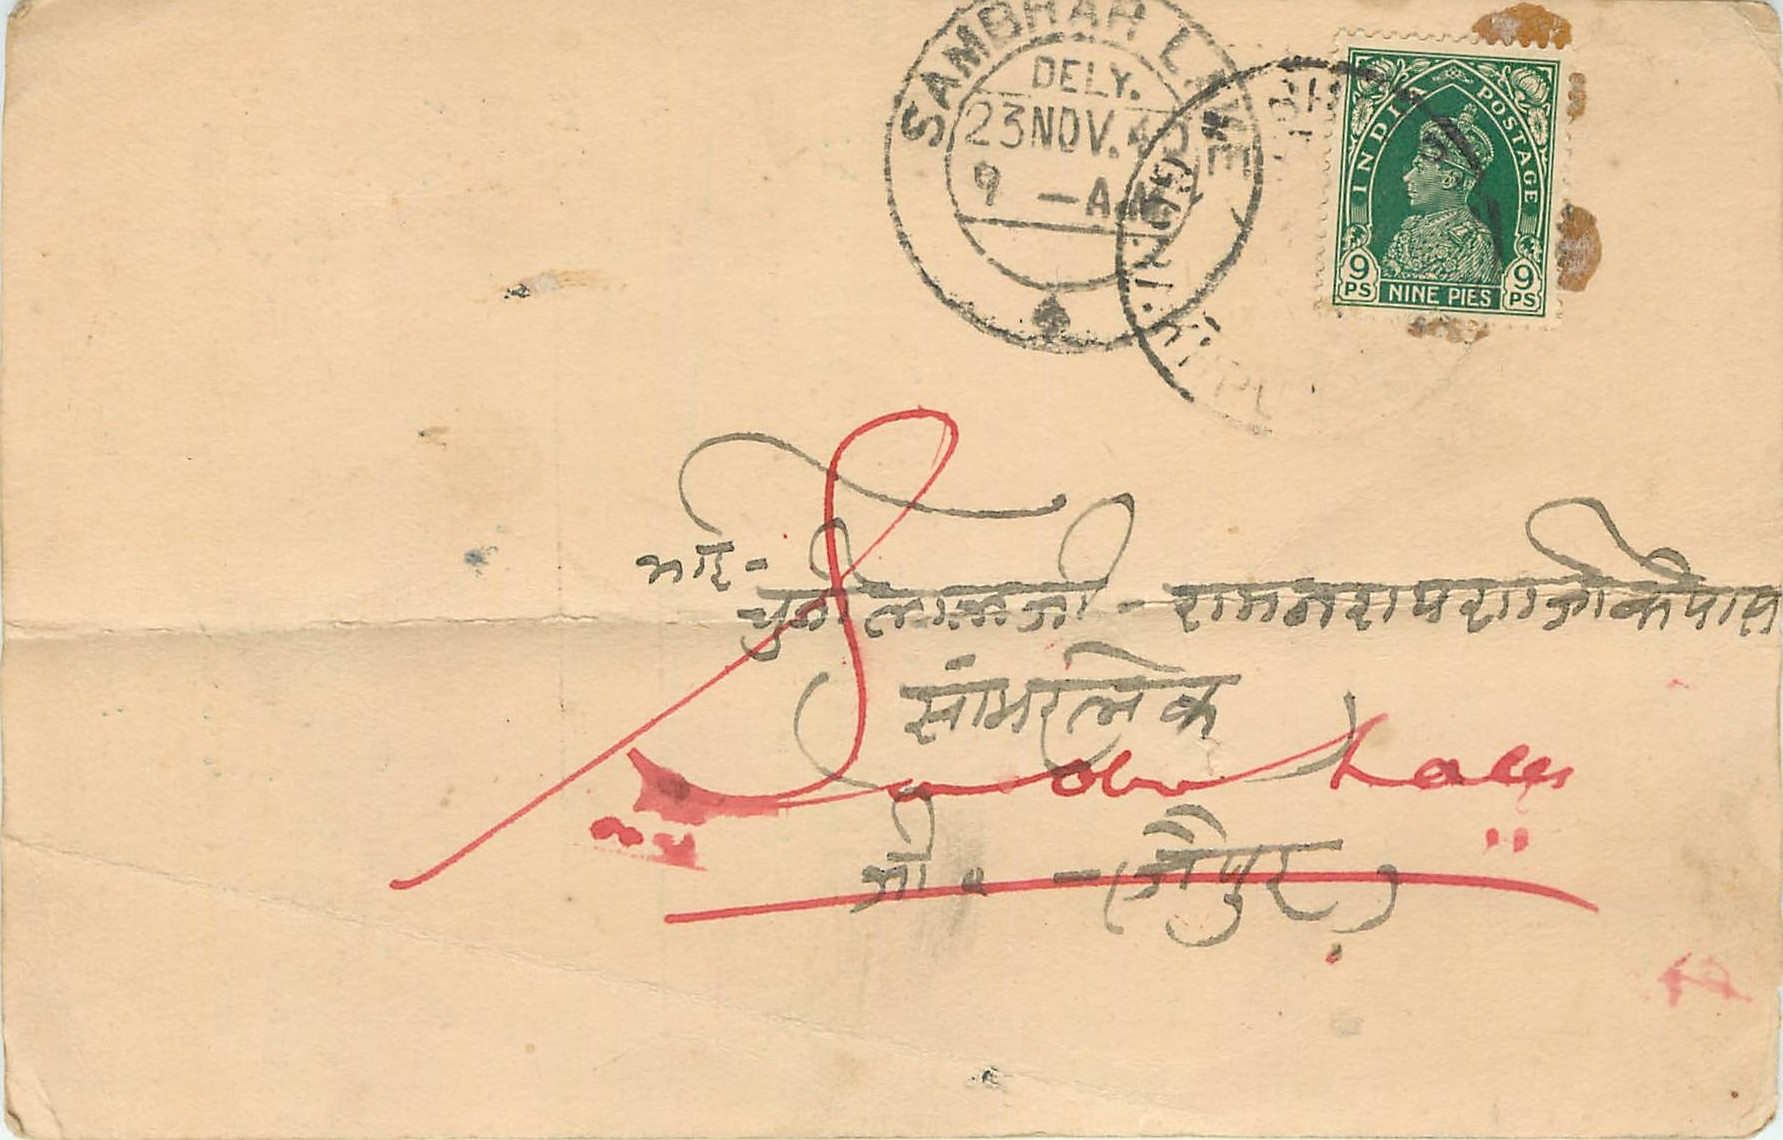 SAMBHAR LAKE
DELY.
23 NOV. 40
9 – A.M.
INDIA POSTAGE
9 PS NINE PIES 9 PS
भाई-
चुनीलालजी - रामनरायणजी के पास
सांभरलेक
Sambhar Lake
(जैपुर)